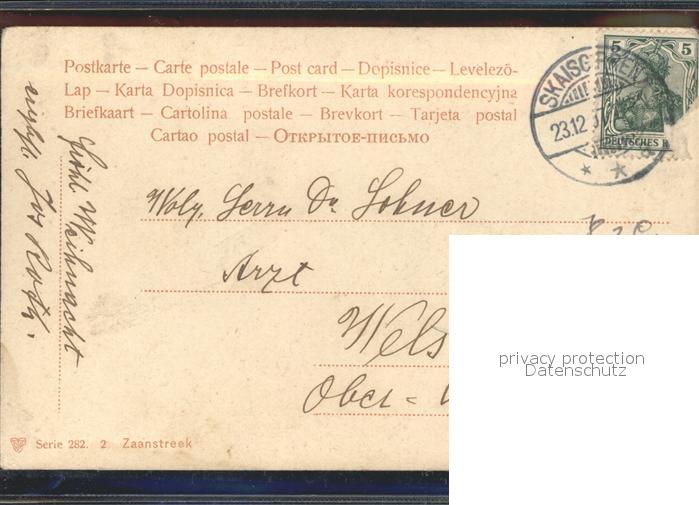 Postkarte – Carte postale – Post card – Dopisnice – Levelező-
Lap – Karta Dopisnica – Brefkort – Karta korespondencyjna
Briefkaart – Cartolina postale – Brevkort – Tarjeta postal
Cartao postal – Открытое-письмо
SKAISGIRREN
23.12
5 5
DEUTSCHES R
Herrn Dr.
Arzt
Wels
Ober=
Fröhl. Weihnacht
Jos Roth.
Serie 282. 2 Zaanstreek
privacy protection
Datenschutz